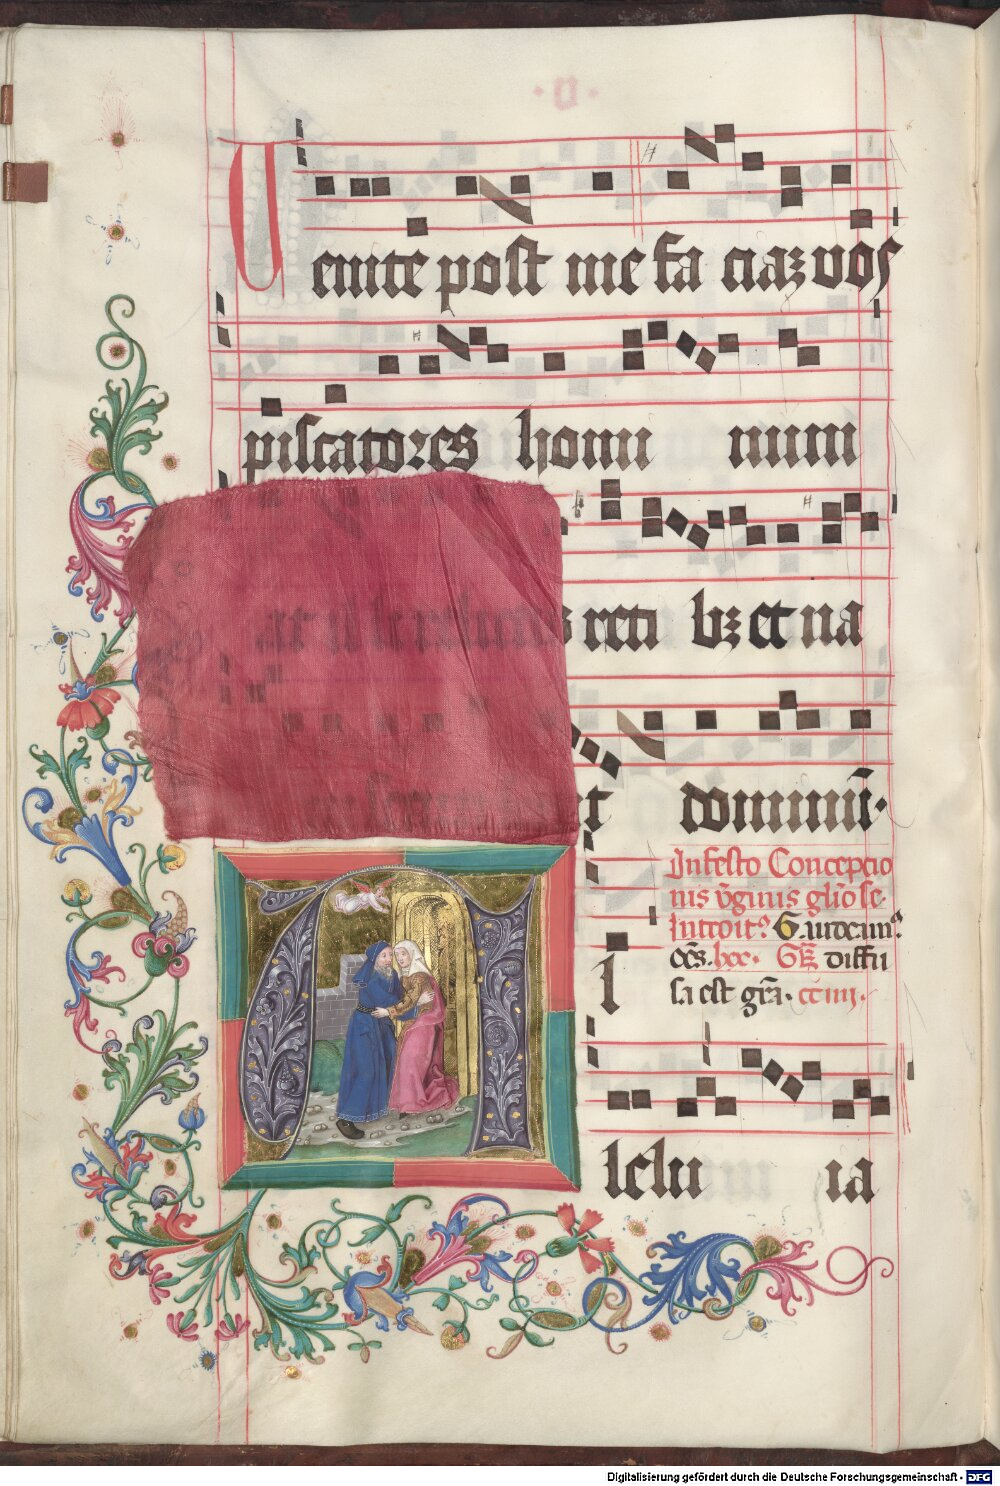 ·v·
Venite post me fa ciaz vos
piscatores homi num
z reti bz et ua
t dominū·
In festo Concepcio
nis v̄ginis glīose·
Introit⁹ G. urocunq̄
oēs. lxx. Gr̄ diffu
sa est grā. cciiij.
lelu ia
Digitalisierung gefördert durch die Deutsche Forschungsgemeinschaft · DFG